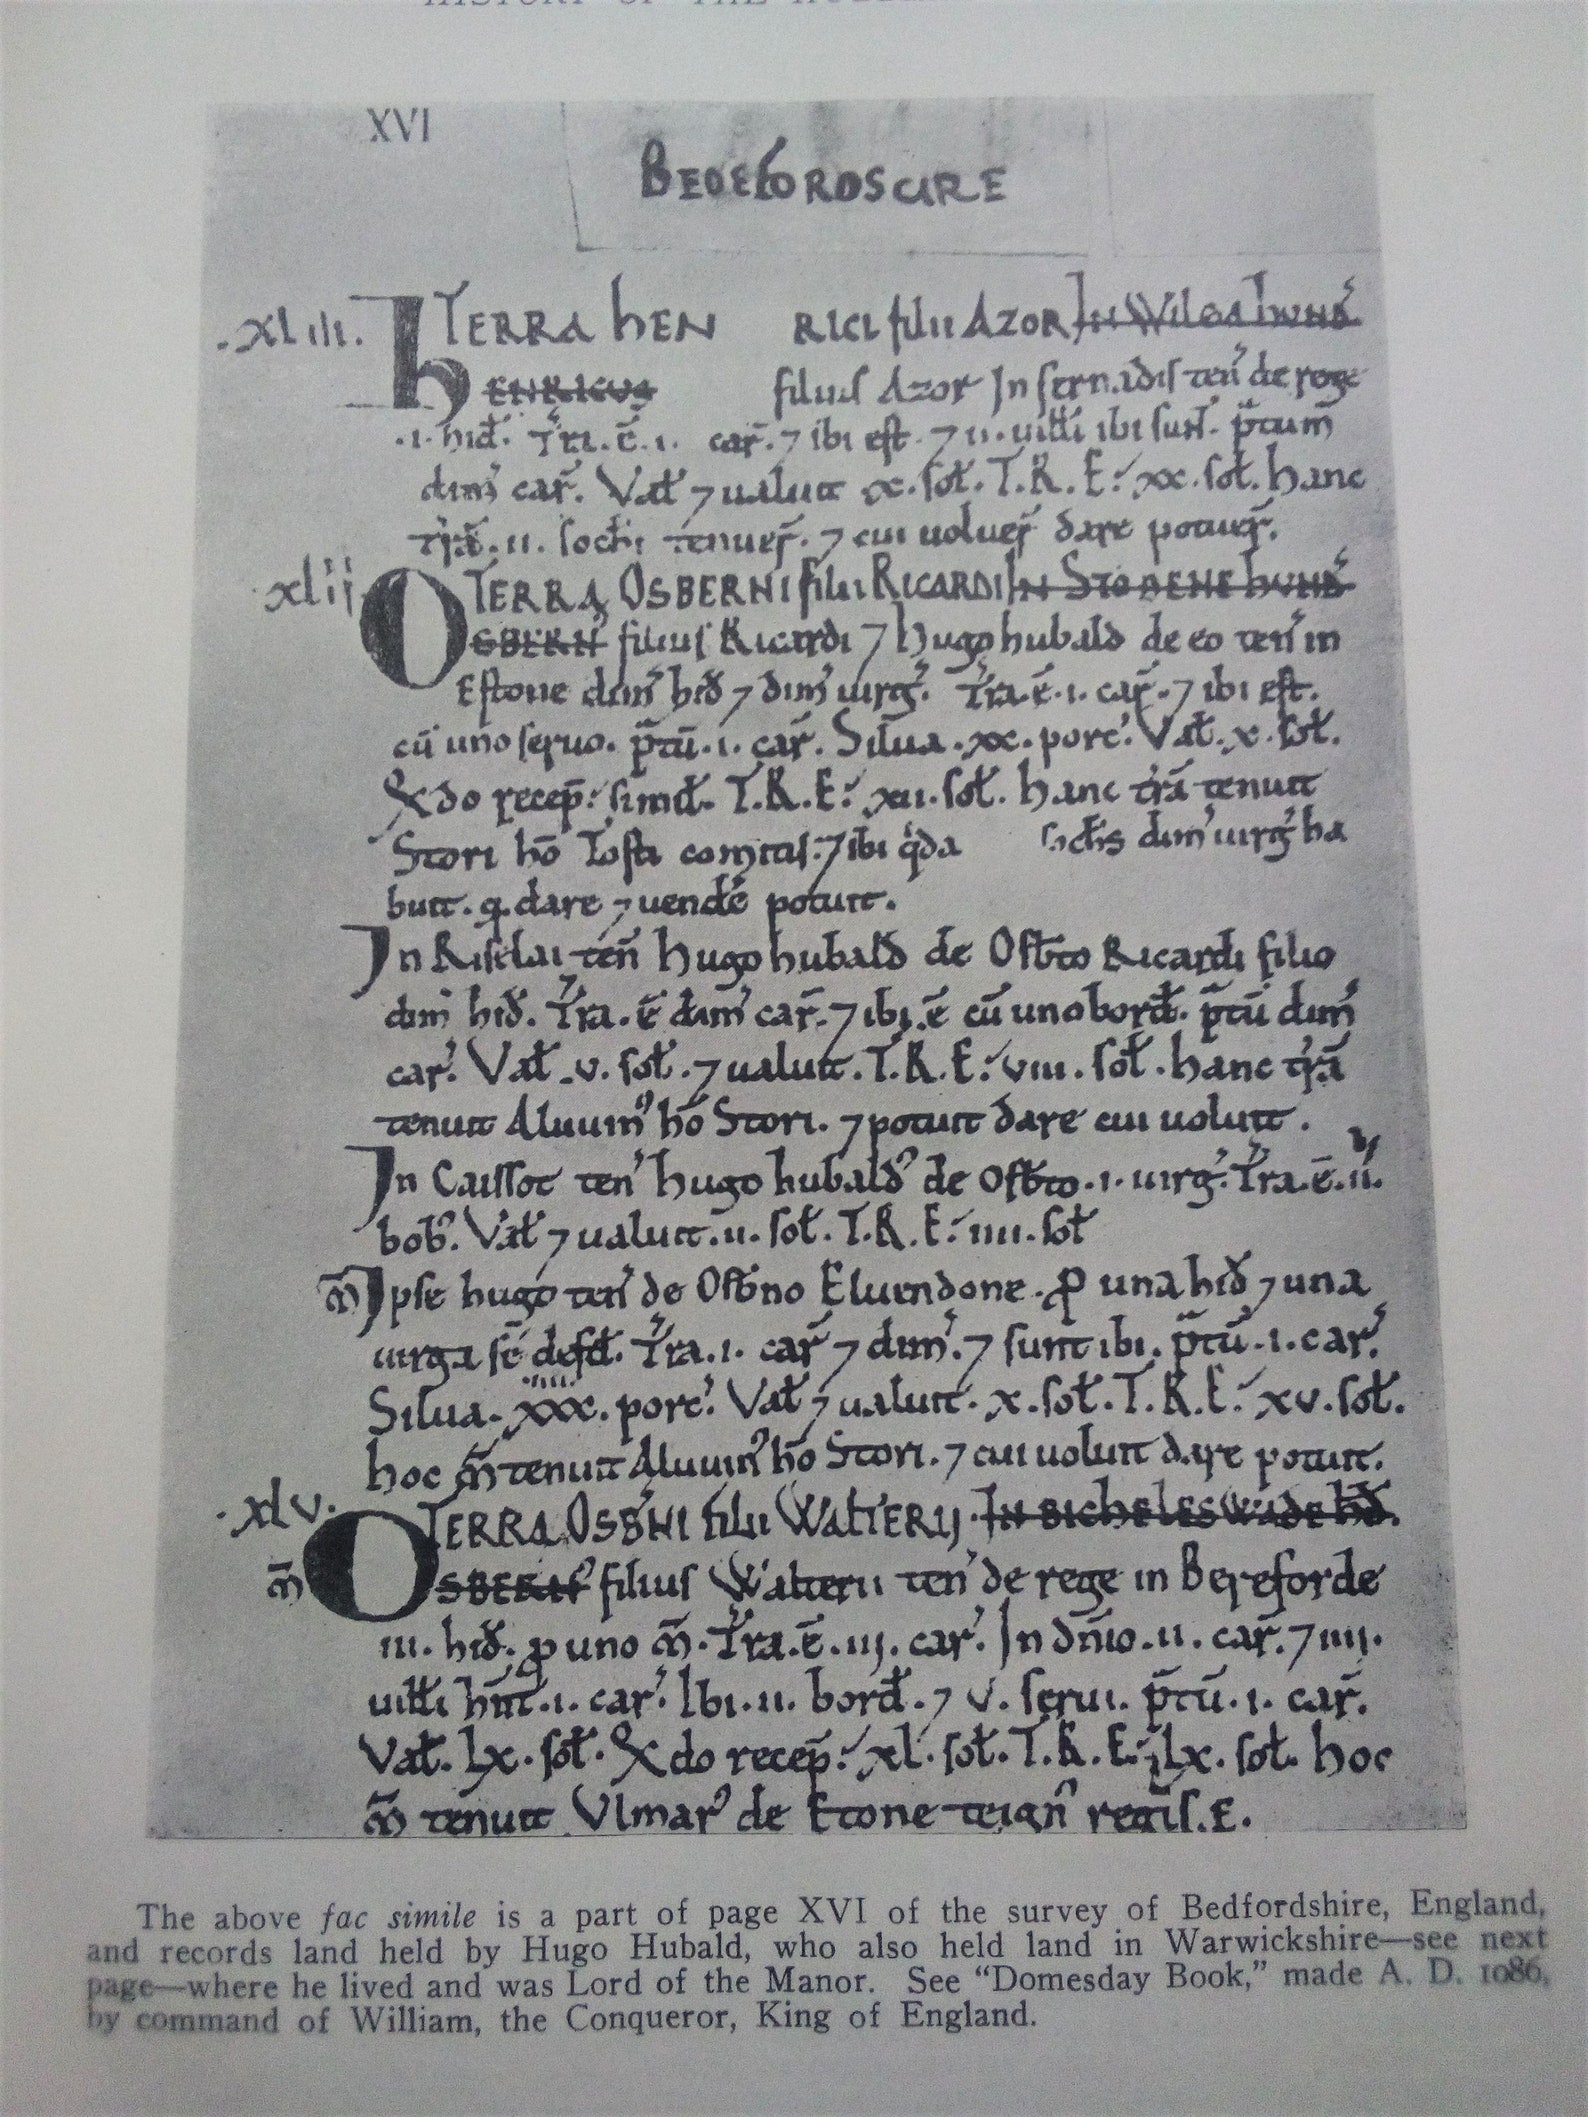 XVI
BEDEFORDSCIRE
.XLIII. TERRA HEN RICI filii AZOR IN WILGA HUND'
HENRICUS filius Azor In sernadis ten' de rege
.i. hid'. Tra.ē.i. car̄. ⁊ ibi est. ⁊ ii. uilli ibi sunt. p̄tum
dim' car̄. Val' ⁊ ualuit x. sol'. T.R.E: xx. sol'. hanc
tr̄a. ii. sochi tenuer̄. ⁊ cui uoluer̄ dare potuer̄.
xlij TERRA OSBERNI filii RICARDI IN STODENE HUND'
OSBERN' filius Ricardi ⁊ hugo hubald de eo ten' in
Estone dim' hid' ⁊ dim' uirg'. Tra.ē.i. car̄. ⁊ ibi est.
cū uno seruo. p̄tū.i. car̄. Silua.xx.porc'. Val'.x.sol'.
Qdo recep̄: simil'. T.R.E: xii.sol'. hanc tr̄a tenuit
Stori hō Tosti comitis: ⁊ ibi qda sochs dim' uirg' ha
buit. q. dare ⁊ uendē potuit.
In Riselai ten̄ hugo hubald de Osb̄to Ricardi filio
dim' hid'. Tra.ē dim' car̄. ⁊ ibi.ē cū uno bord'. p̄tū dim'
car'. Val'.v.sol'. ⁊ ualuit. T.R.E: viii. sol'. hanc tr̄a
tenuit Aluuin' hō Stori. ⁊ potuit dare cui uoluit.
In Caissot ten' hugo hubald' de Osb̄to.i.uirg'. Tra.ē.ii.
bob'. Val' ⁊ ualuit.ii.sol'. T.R.E: iiii.sol'
m̄ Ipse hugo ten' de Osb'no Eluendone. ꝑ una hid' ⁊ una
uirga sē defd'. Tra.i. car̄ ⁊ dim'. ⁊ sunt ibi. p̄tū.i.car'.
Silua. xxx. porc'. Val' ⁊ ualuit. x. sol'. T.R.E: xv.sol'.
hoc m̄ tenuit Aluuin' hō Stori. ⁊ cui uoluit dare potuit.
.xlv. TERRA OSB'NI filii WALTERIJ. IN BICHELESWADE HD'.
m̄ OSBERN' filius Walterii ten' de rege in Bereforde
iii. hid'. ꝑ uno m̄. Tra.ē.iij. car'. In dn̄io.ii. car̄. ⁊ iiij.
uilli hn̄t.i. car'. Ibi.ii. bord'. ⁊ v. serui. p̄tū.i. car̄.
Val'. lx. sol'. Qdo recep̄: xl. sol'. T.R.E: lx. sol'. hoc
m̄ tenuit Ulmar' de Etone teign' regis.E.
The above fac simile is a part of page XVI of the survey of Bedfordshire, England,
and records land held by Hugo Hubald, who also held land in Warwickshire—see next
page—where he lived and was Lord of the Manor. See “Domesday Book,” made A. D. 1086,
by command of William, the Conqueror, King of England.